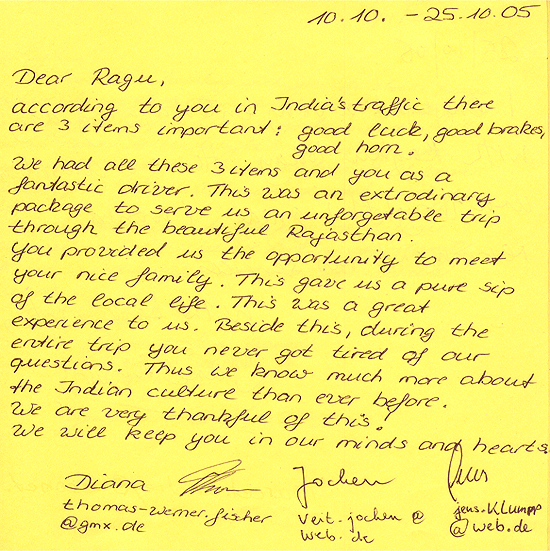 10.10. - 25.10.05
Dear Ragu,
according to you in India's traffic there
are 3 items important: good luck, good brakes,
good horn.
We had all these 3 items and you as a
fantastic driver. This was an extrodinary
package to serve us an unforgetable trip
through the beautiful Rajasthan.
You provided us the opportunity to meet
your nice family. This gave us a pure sip
of the local life. This was a great
experience to us. Beside this, during the
entire trip you never got tired of our
questions. Thus we know much more about
the Indian culture than ever before.
We are very thankful of this!
We will keep you in our minds and hearts.
Diana Jochen Jens
thomas-werner.fischer
@gmx.de
Veit.jochen@
web.de
jens.Klumpp
@web.de